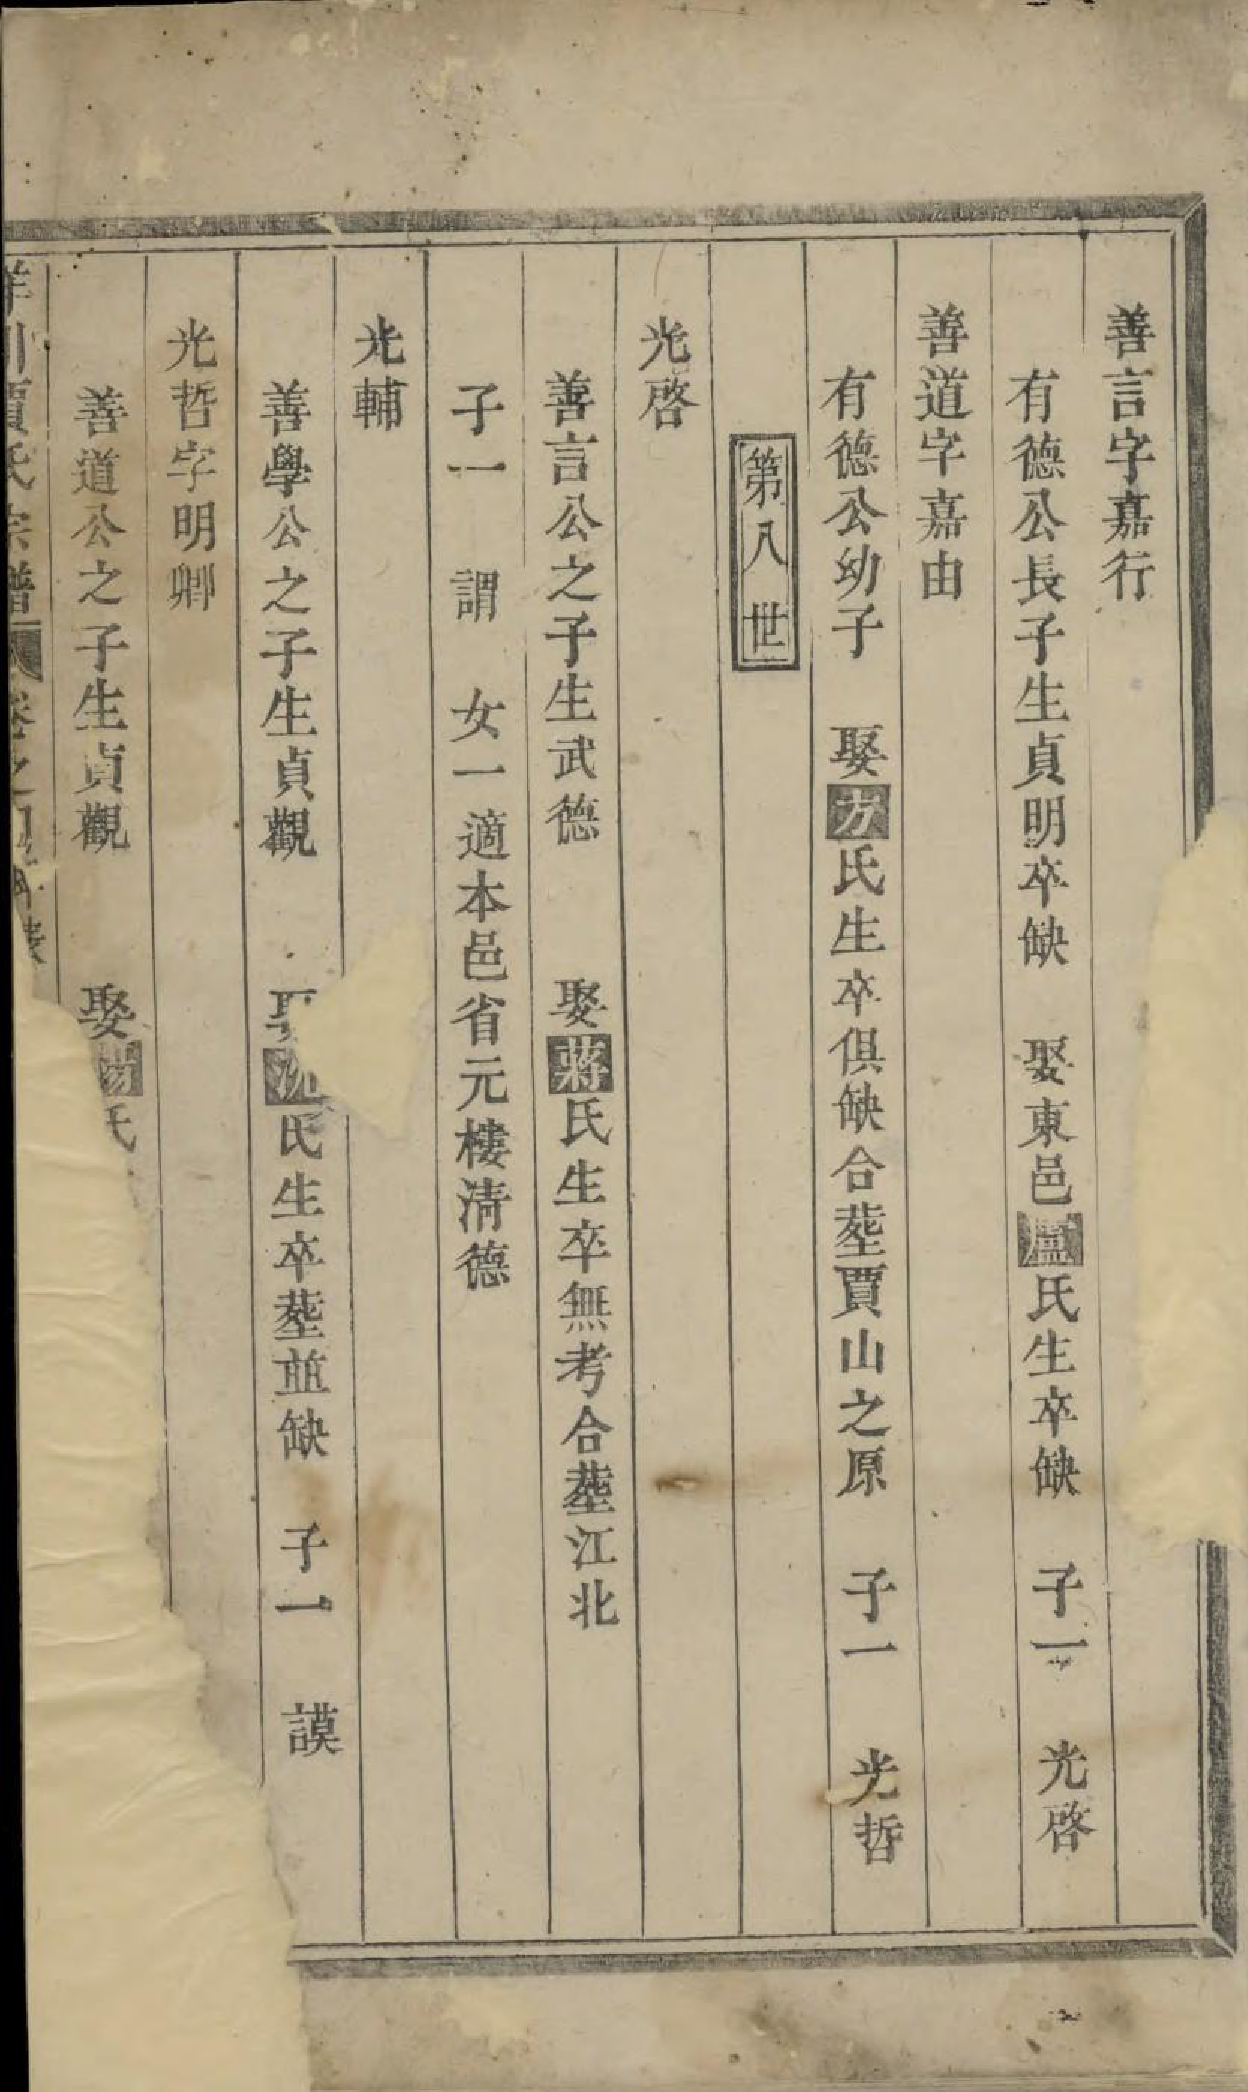 善言字嘉行
有德公長子生貞明卒缺　娶東邑盧氏生卒缺　子一　光啓
善道字嘉由
有德公幼子　娶方氏生卒俱缺合塟賈山之原　子一　光哲
第八世
光啓
善言公之子生武德　娶蔣氏生卒無考合塟江北
子一　謂　女一適本邑省元樓淸德
光輔
善學公之子生貞觀　娶沈氏生卒塟並缺　子一　謨
光哲字明卿
善道公之子生貞觀　娶楊氏
賈氏宗譜　卷之